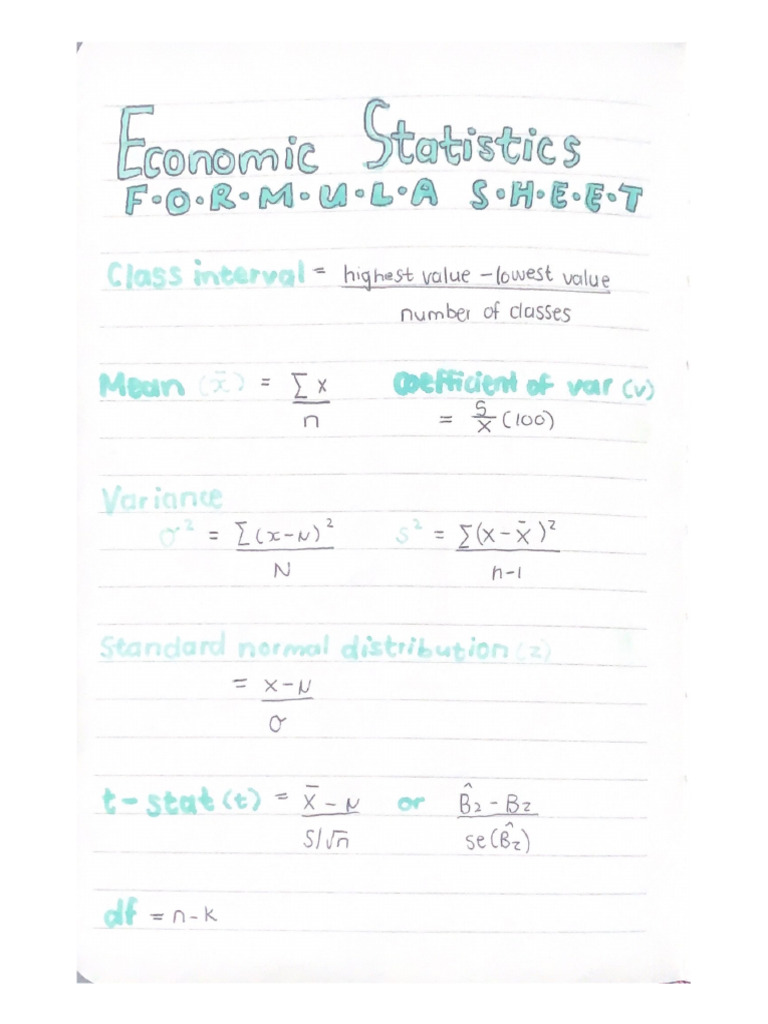 Economic Statistics
F·O·R·M·U·L·A S·H·E·E·T
Class interval = highest value - lowest value
number of classes
Mean (x̄) = ∑x / n
Coefficient of var (v)
= S/X (100)
Variance
σ² = ∑(x-μ)² / N
s² = ∑(x-x̄)² / n-1
Standard normal distribution (z)
= x-μ / σ
t-stat (t) = x̄-μ / S/√n or B̂2 - B2 / se(B̂2)
df = n-k